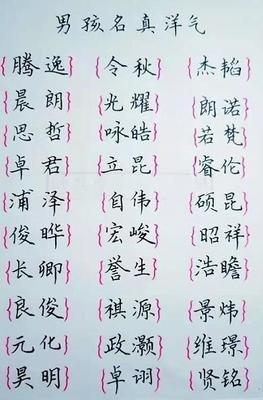 男孩名真洋气
{腾逸} {令秋} {杰韬}
{晨朗} {光耀} {朗诺}
{思哲} {咏皓} {若梵}
{卓君} {立昆} {睿伦}
{浦泽} {自伟} {硕昆}
{俊晔} {宏峻} {昭祥}
{长卿} {誉生} {浩瞻}
{良俊} {祺源} {景炜}
{元化} {政灏} {维璟}
{昊明} {卓诩} {贤铭}